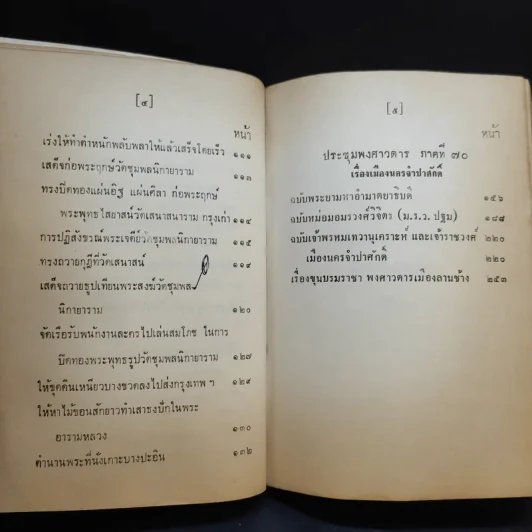 [๔]
หน้า
เร่งให้ทำตำหนักพลับพลาให้แล้วเสร็จโดยเร็ว ๑๑๑
เสด็จก่อพระฤกษ์วัดชุมพลนิกายาราม
ทรงปิดทองแผ่นอิฐ แผ่นศิลา ก่อพระฤกษ์
พระพุทธไสยาสน์วัดเสนาสนาราม กรุงเก่า ๑๑๔
การปฏิสังขรณ์พระเจดีย์วัดชุมพลนิกายาราม ๑๑๕
ทรงถวายกุฎีที่วัดเสนาสน์ ๑๑๙
เสด็จถวายธูปเทียนพระสงฆ์วัดชุมพล
นิกายาราม ๑๒๐
จัดเรือรับพนักงานละครไปเล่นสมโภช ในการ
ปิดทองพระพุทธรูปวัดชุมพลนิกายาราม ๑๒๗
ให้ขุดดินเหนียวบางขวดลงไปส่งกรุงเทพ ฯ ๑๒๙
ให้หาไม้ขอนสักยาวทำเสาธงปักในพระ
อารามหลวง ๑๓๐
ตำนานพระที่นั่งเกาะบางปะอิน ๑๓๒
[๕]
หน้า
ประชุมพงศาวดาร ภาคที่ ๗๐
เรื่องเมืองนครจำปาศักดิ์
ฉบับพระยามหาอำมาตยาธิบดี ๑๕๖
ฉบับหม่อมอมรวงศ์วิจิตร (ม.ร.ว. ปฐม) ๑๘๗
ฉบับเจ้าพรหมเทวานุเคราะห์ และเจ้าราชวงศ์ ๒๒๐
เมืองนครจำปาศักดิ์ ๒๒๐
เรื่องขุนบรมราชา พงศาวดารเมืองลานช้าง ๒๕๓